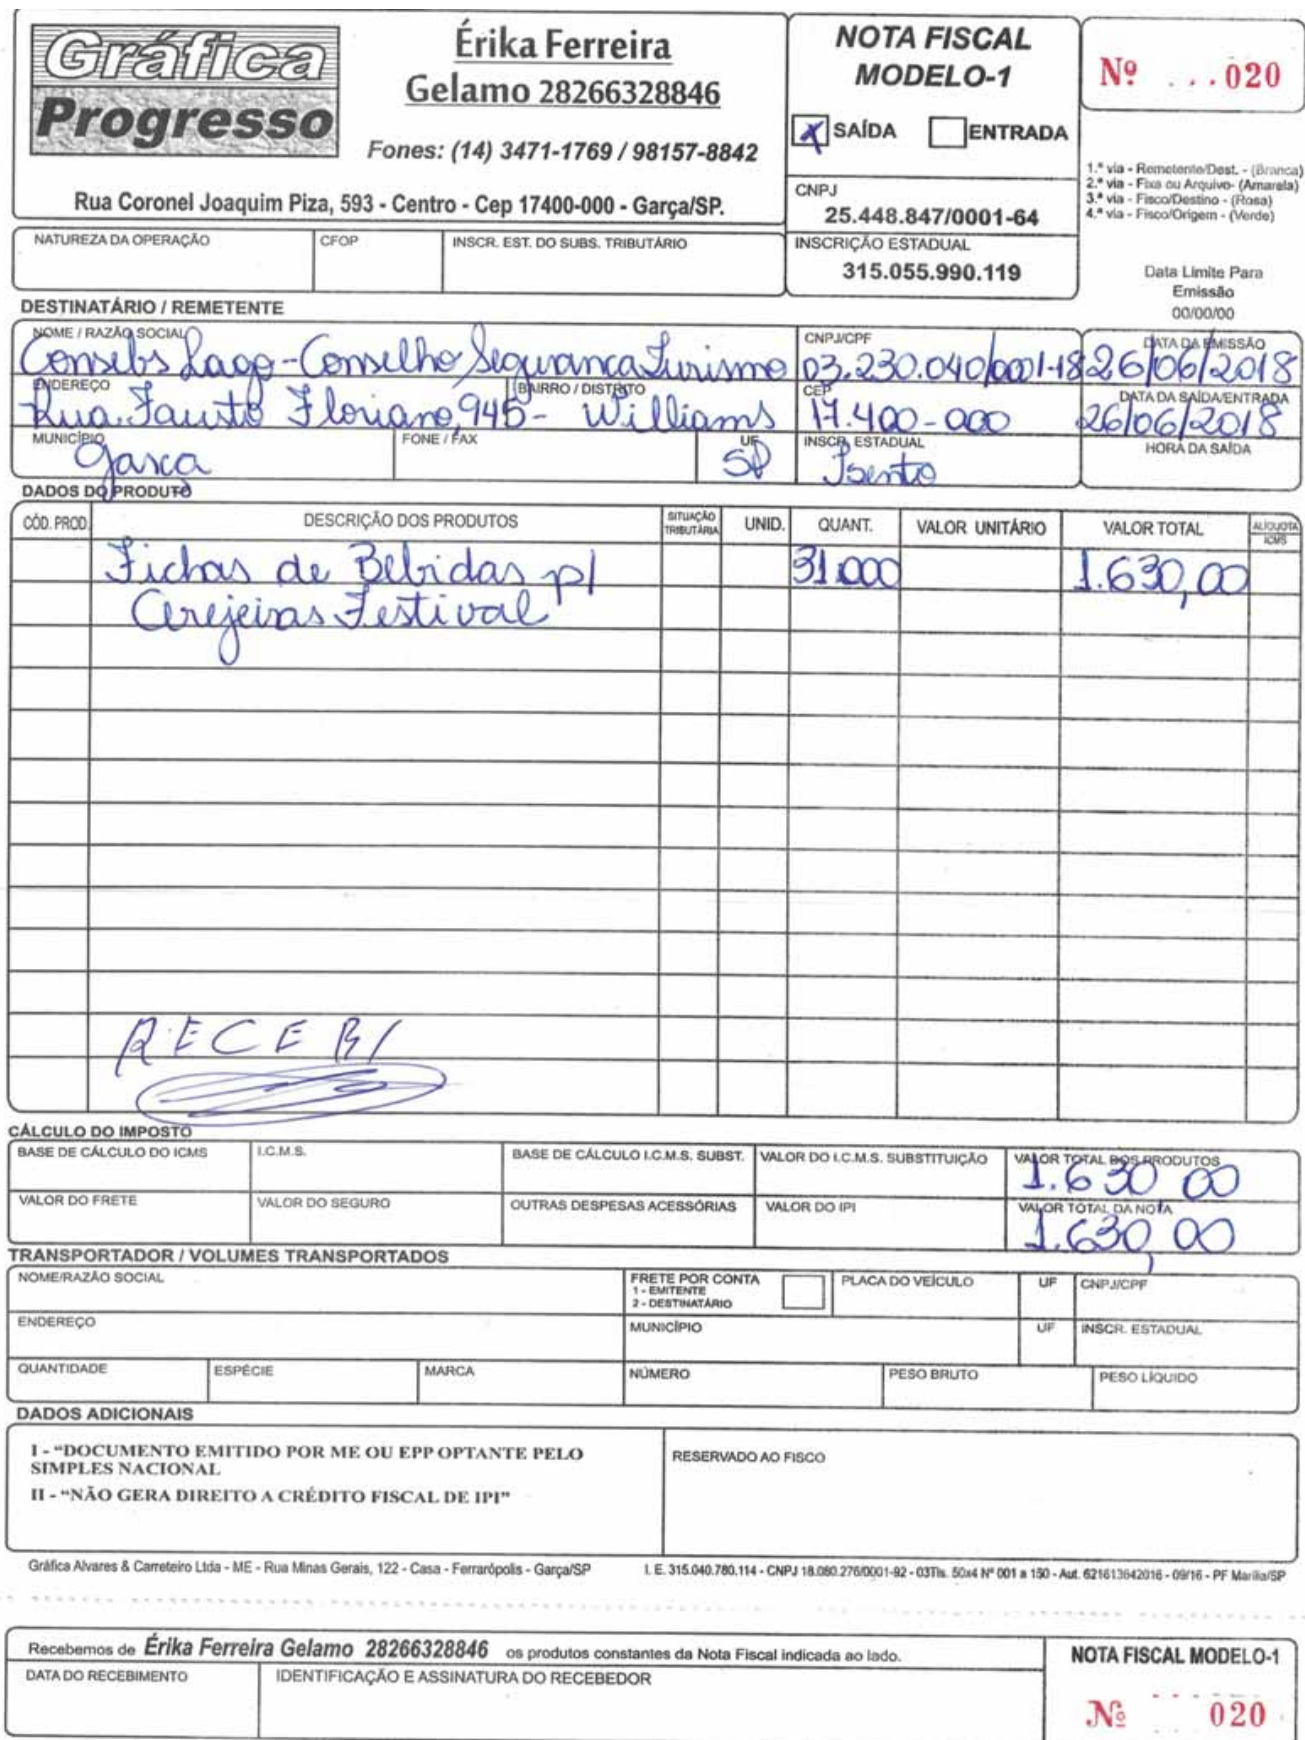 Gráfica
Progresso
Érika Ferreira
Gelamo 28266328846
Fones: (14) 3471-1769 / 98157-8842
Rua Coronel Joaquim Piza, 593 - Centro - Cep 17400-000 - Garça/SP.
NOTA FISCAL
MODELO-1
X SAÍDA ENTRADA
CNPJ
25.448.847/0001-64
INSCRIÇÃO ESTADUAL
315.055.990.119
Nº ...020
1.ª via - Remetente/Dest. - (Branca)
2.ª via - Fixa ou Arquivo- (Amarela)
3.ª via - Fisco/Destino - (Rosa)
4.ª via - Fisco/Origem - (Verde)
Data Limite Para
Emissão
00/00/00
NATUREZA DA OPERAÇÃO CFOP INSCR. EST. DO SUBS. TRIBUTÁRIO
DESTINATÁRIO / REMETENTE
NOME / RAZÃO SOCIAL CNPJ/CPF DATA DA EMISSÃO
Consebs Lago - Conselho Segurança Turismo 03.230.040/0001-18 26/06/2018
ENDEREÇO BAIRRO / DISTRITO CEP DATA DA SAÍDA/ENTRADA
Rua. Fausto Floriano, 945 - Williams 17.400-000 26/06/2018
MUNICÍPIO FONE / FAX UF INSCR. ESTADUAL HORA DA SAÍDA
Garça SP Isento
DADOS DO PRODUTO
CÓD. PROD. DESCRIÇÃO DOS PRODUTOS SITUAÇÃO TRIBUTÁRIA UNID. QUANT. VALOR UNITÁRIO VALOR TOTAL ALÍQUOTA ICMS
Fichas de Bebidas p/ 31.000 1.630,00
Cerejeiras Festival
RECEBI
CÁLCULO DO IMPOSTO
BASE DE CÁLCULO DO ICMS I.C.M.S. BASE DE CÁLCULO I.C.M.S. SUBST. VALOR DO I.C.M.S. SUBSTITUIÇÃO VALOR TOTAL DOS PRODUTOS
1.630,00
VALOR DO FRETE VALOR DO SEGURO OUTRAS DESPESAS ACESSÓRIAS VALOR DO IPI VALOR TOTAL DA NOTA
1.630,00
TRANSPORTADOR / VOLUMES TRANSPORTADOS
NOME/RAZÃO SOCIAL FRETE POR CONTA PLACA DO VEÍCULO UF CNPJ/CPF
1 - EMITENTE
2 - DESTINATÁRIO
ENDEREÇO MUNICÍPIO UF INSCR. ESTADUAL
QUANTIDADE ESPÉCIE MARCA NÚMERO PESO BRUTO PESO LÍQUIDO
DADOS ADICIONAIS
I - "DOCUMENTO EMITIDO POR ME OU EPP OPTANTE PELO
SIMPLES NACIONAL
II - "NÃO GERA DIREITO A CRÉDITO FISCAL DE IPI"
RESERVADO AO FISCO
Gráfica Alvares & Carreteiro Ltda - ME - Rua Minas Gerais, 122 - Casa - Ferrarópolis - Garça/SP I. E. 315.040.780.114 - CNPJ 18.080.276/0001-92 - 03Tls. 50x4 Nº 001 a 150 - Aut. 621613642016 - 09/16 - PF Marília/SP
Recebemos de Érika Ferreira Gelamo 28266328846 os produtos constantes da Nota Fiscal indicada ao lado.
DATA DO RECEBIMENTO IDENTIFICAÇÃO E ASSINATURA DO RECEBEDOR
NOTA FISCAL MODELO-1
Nº 020